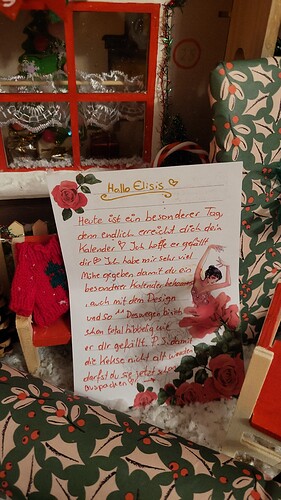 Hallo Elisis
Heute ist ein besonderer Tag,
denn endlich erreicht dich dein
Kalender Ich hoffe er gefällt
dir Ich habe mir sehr viel
Mühe gegeben damit du ein
besonderer Kalender bekommst
, auch mit dem Design
und so ^^ Deswegen bin ich
schon total hibbelig wie
er dir gefällt. P.S. damit
die Kekse nicht alt werden
darfst du sie jetzt schon
auspacken